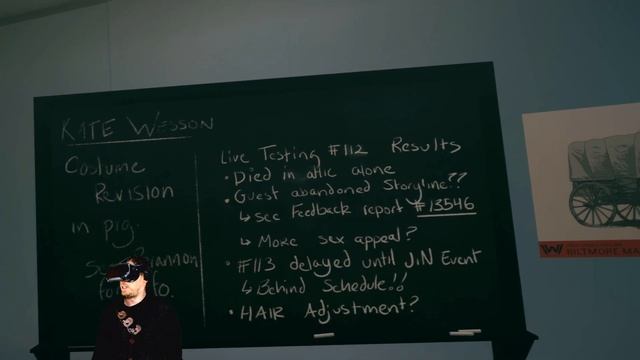 KATE WESSON
Costume
Revision
in prg.
Live Testing #112 Results
• Died in attic alone
• Guest abandoned Storyline??
↳ see Feedback report #13546
↳ More sex appeal?
• #113 delayed until J.N Event
↳ Behind Schedule!!
• HAIR Adjustment?
BILTMORE